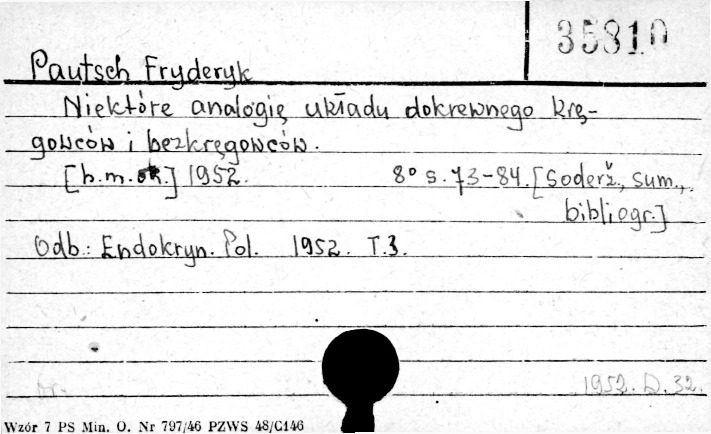 35810
Pautsch Fryderyk
Niektóre analogię układu dokrewnego krę-
gowców i bezkręgowców.
[b.m.dr.] 1952. 8° s. 73-84. [Soderž., sum.,
bibliogr.]
Odb.: Endokryn. Pol. 1952. T.3.
1952. D. 32.
Wzór 7 PS Min. O. Nr 797/46 PZWS 48/C146